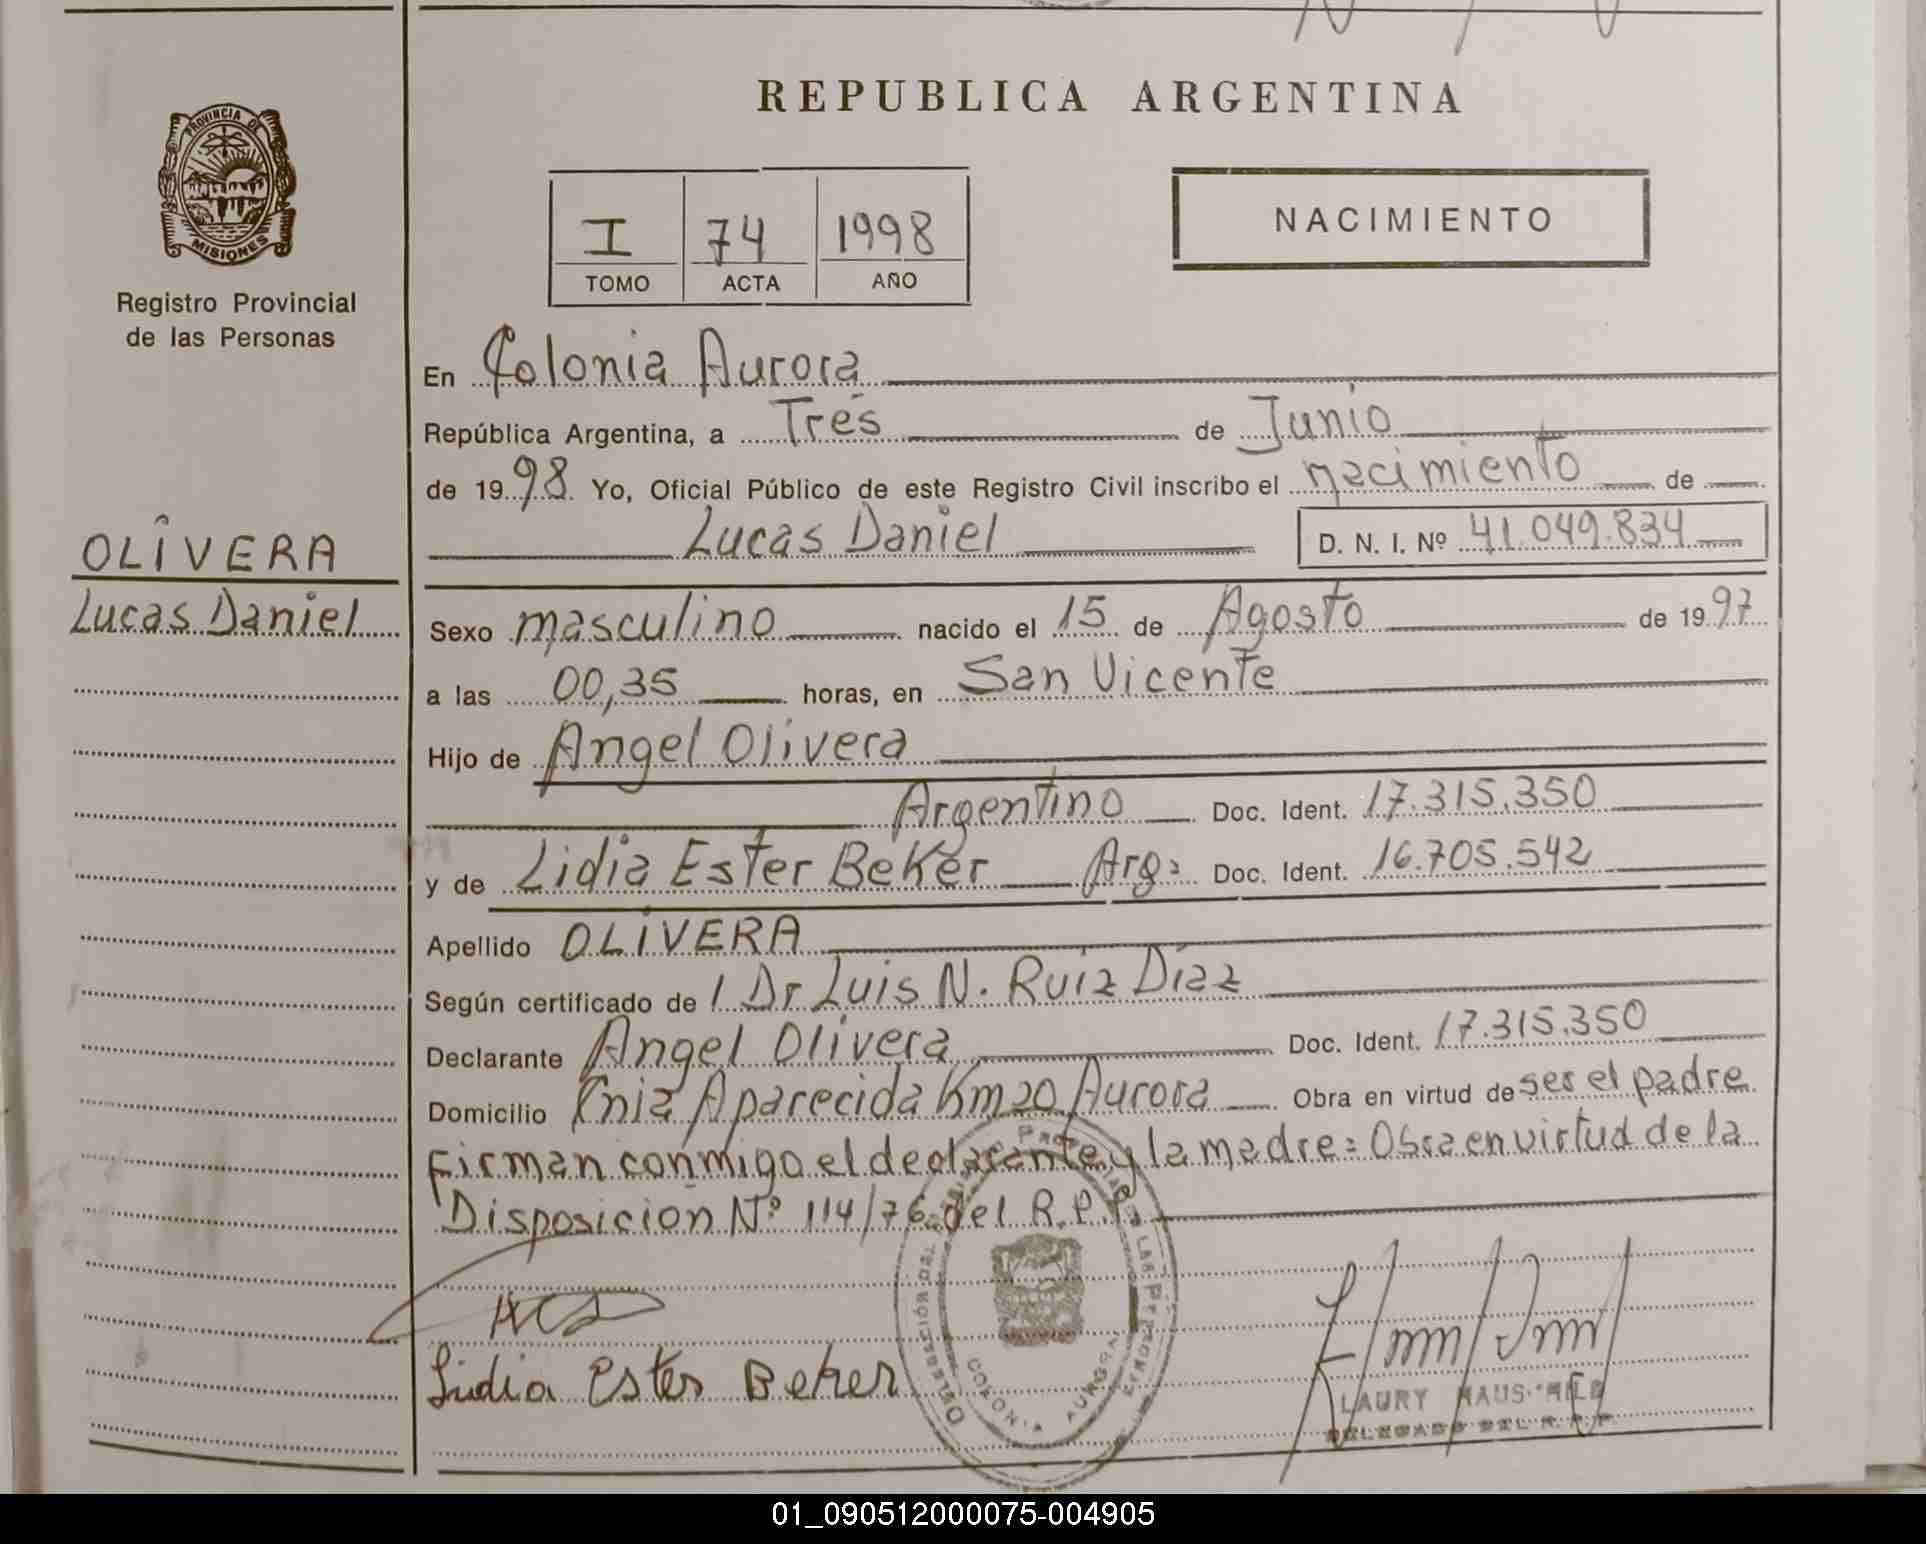 REPUBLICA ARGENTINA
PROVINCIA DE
MISIONES
Registro Provincial
de las Personas
I 74 1998
TOMO ACTA AÑO
NACIMIENTO
En Colonia Aurora
República Argentina, a Tres de Junio
de 1998 Yo, Oficial Público de este Registro Civil inscribo el nacimiento de
Lucas Daniel D. N. I. Nº 41.049.834
OLIVERA
Lucas Daniel
Sexo masculino nacido el 15 de Agosto de 1997
a las 00,35 horas, en San Vicente
Hijo de Angel Olivera
Argentino Doc. Ident. 17.315.350
y de Lidia Ester Beker Arg: Doc. Ident. 16.705.542
Apellido OLIVERA
Según certificado de Dr Luis N. Ruiz Díaz
Declarante Angel Olivera Doc. Ident. 17.315.350
Domicilio Cnia Aparecida Km 20 Aurora Obra en virtud de ser el padre
Firman conmigo el declarante y la madre = Obra en virtud de la
Disposición Nº 114/76 del R.P.P.
Lidia Ester Beker
COLONIA AURORA
LAURY
DELEGADO DEL R.P.P.
01_090512000075-004905